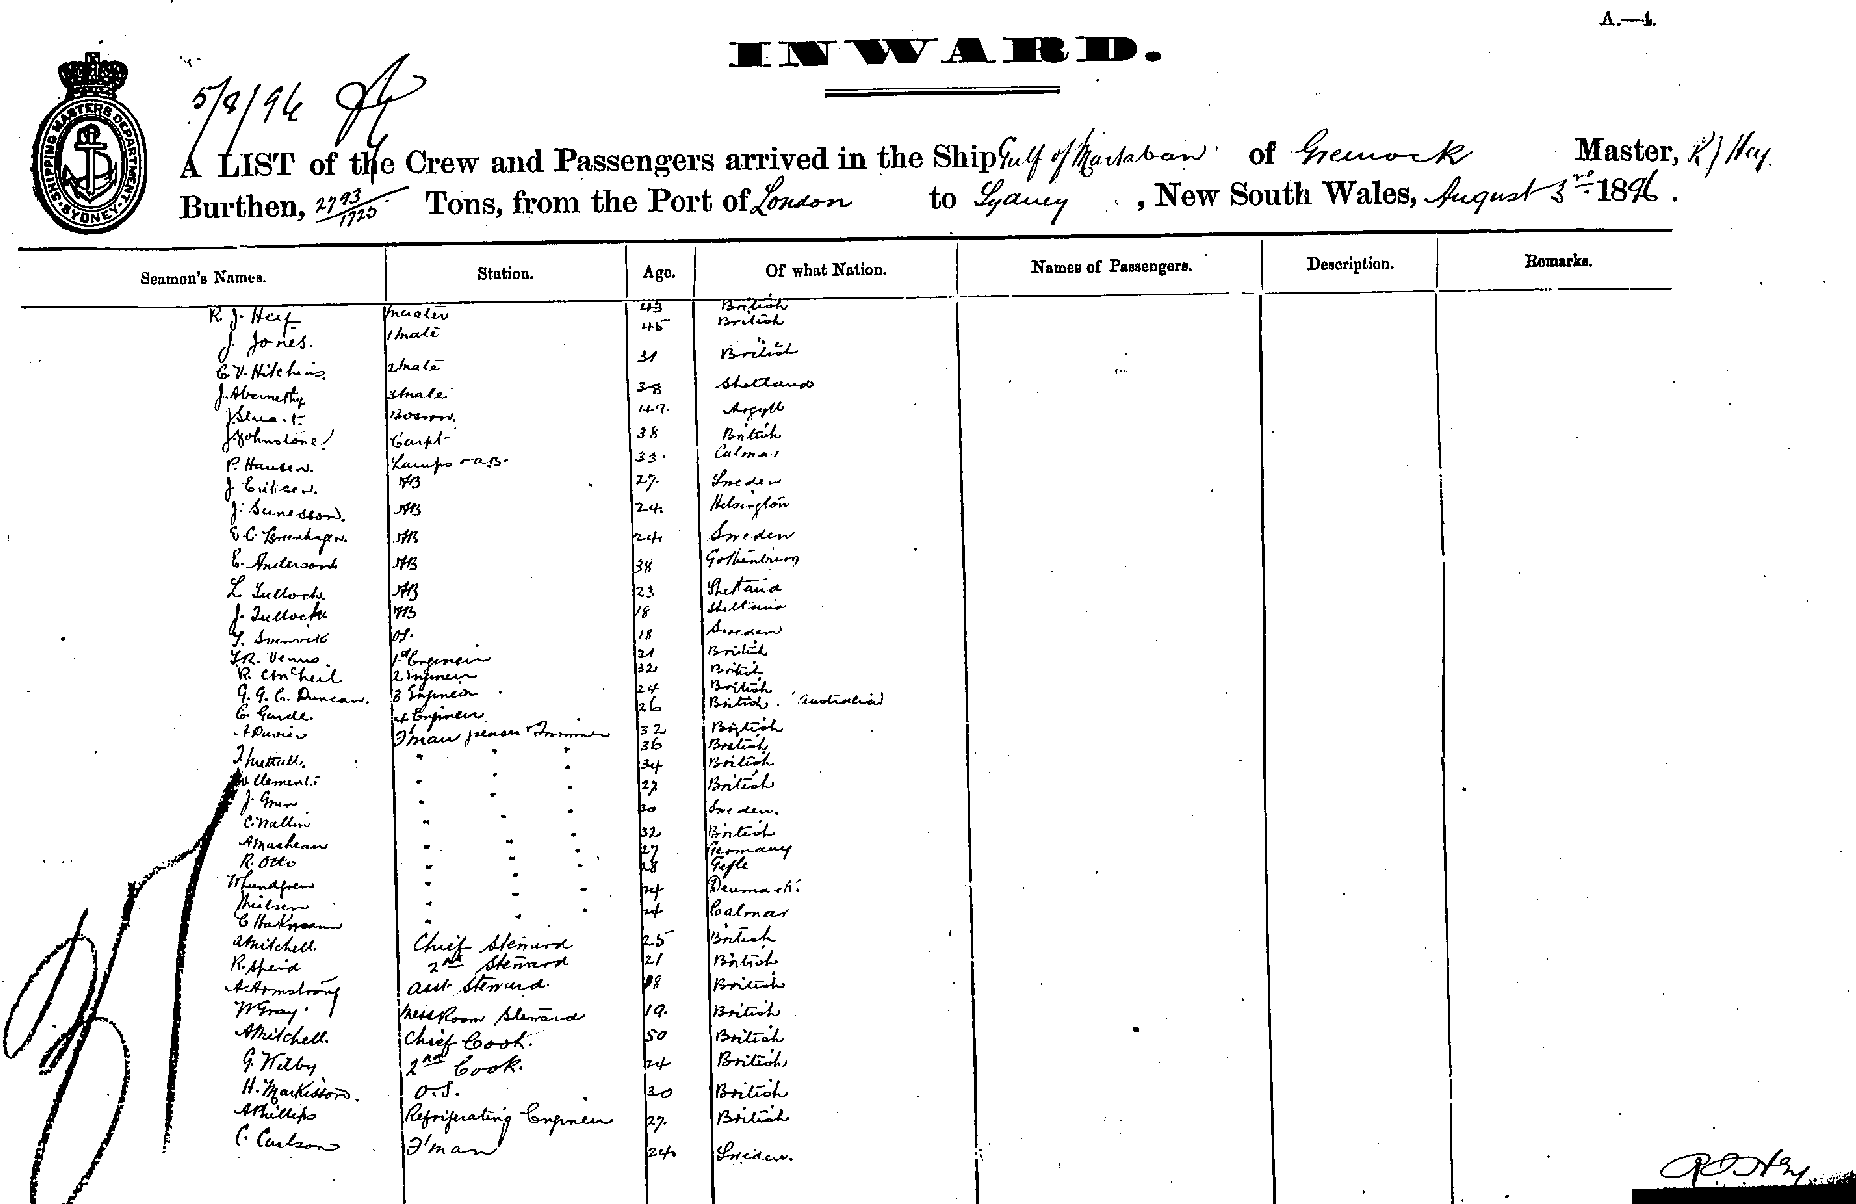 A.—4.
INWARD.
5/8/96
SHIPPING MASTERS DEPARTMENT SYDNEY
A LIST of the Crew and Passengers arrived in the Ship Gulf of Martaban of Greenock Master, R J Hay.
Burthen, 2793/1725 Tons, from the Port of London to Sydney, New South Wales, August 3rd 1896.
Seamen's Names. Station. Age. Of what Nation. Names of Passengers. Description. Remarks.
R. J. Hay Master 43 British
J. Jones. 1 Mate 45 British
C. V. Hitchins. 2 Mate 31 British
J. Abernethy 3 Mate 38 Shetland
J. Bosun. 47. Argyll
J. Johnstone Carpt 38 British
P. Hansen. Lamps & AB. 33. Calmar
J. Ericsen. AB 27. Sweden
J. Sunesson. AB 24. Helsington
E C. AB 24 Sweden
E. Anderson AB 38 Gothenburg
L Tulloch AB 23 Shetland
J. Tulloch AB 18 Shetland
OS. 18 Sweden
J R. Venus. 1st Engineer 31 British
R. McNeil 2 Engineer 32 British
G. G. C. Duncan. 3 Engineer 24 British
C. Garde. 4 Engineer 26 British. Australia
F'man 32 British
" " " 36 British
Clements " " " 34 British
J. " " " 27 British
C. Wallin " " " 30 Sweden.
A " " " 32 British
R. Otto " " " 27 Germany
Lundgren " " " 28 Gefle
Nielsen " " " 24 Denmark.
C " " " 24 Calmar
A Mitchell. Chief Steward 25 British
R. Speid 2nd Steward 21 British
A. Armstrong Asst Steward. 18 British
W Gray. Mess Room Steward 19. British
A Mitchell. Chief Cook. 50 British
G. Wilby 2nd Cook. 24 British
H. Markisson. O.S. 20 British
A Phillips Refrigerating Engineer 27. British
C. Carlson F'man 24. Sweden.
R J Hay